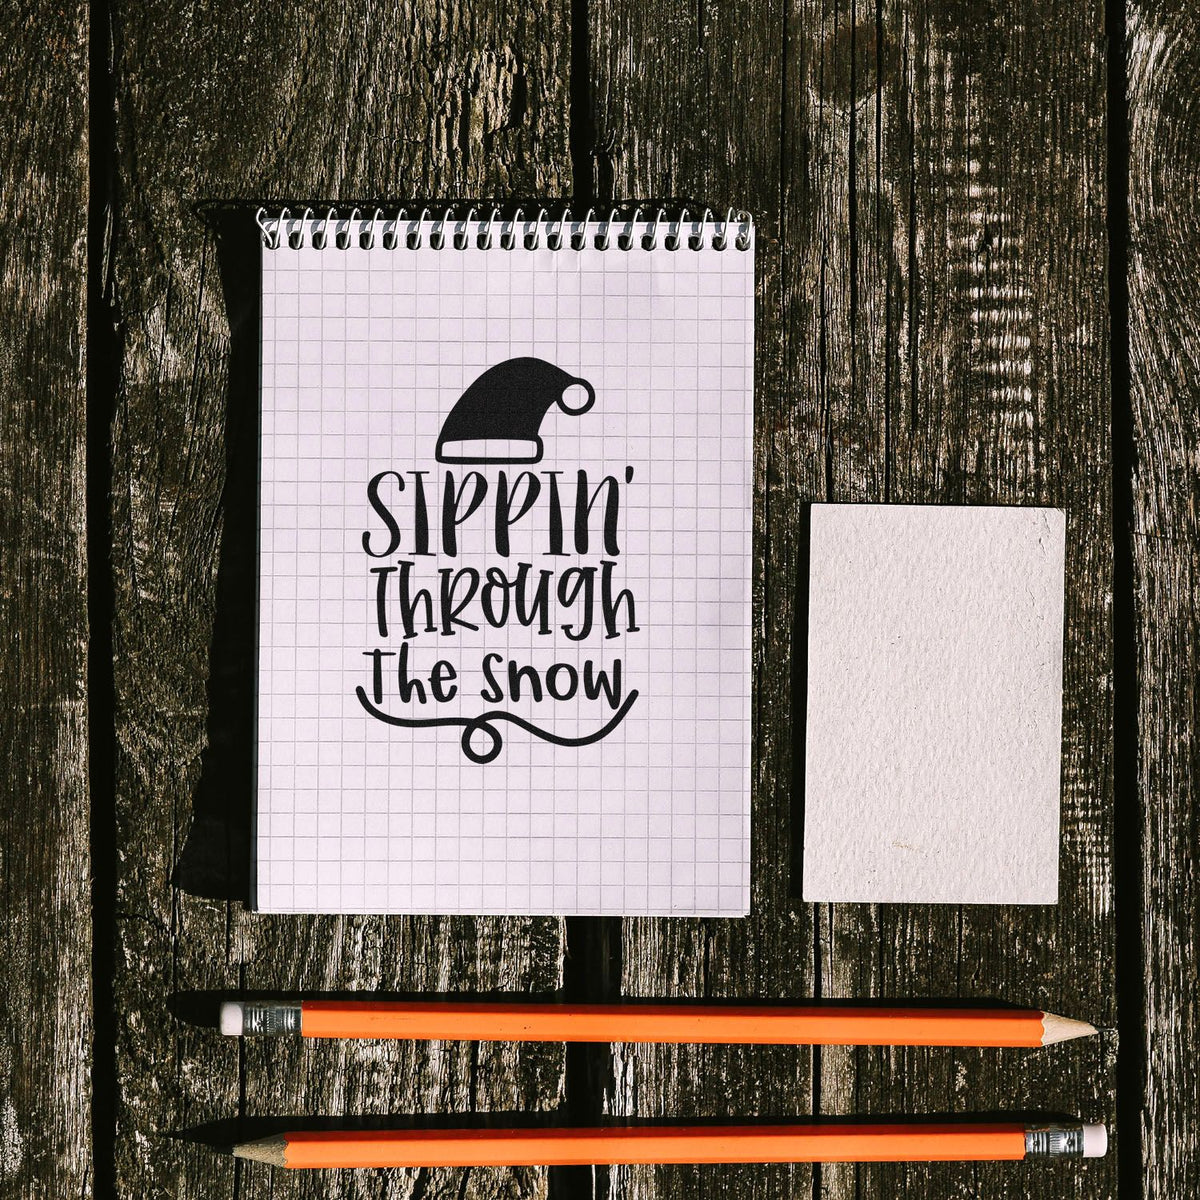 SIPPIN'
ThROUgh
The snow